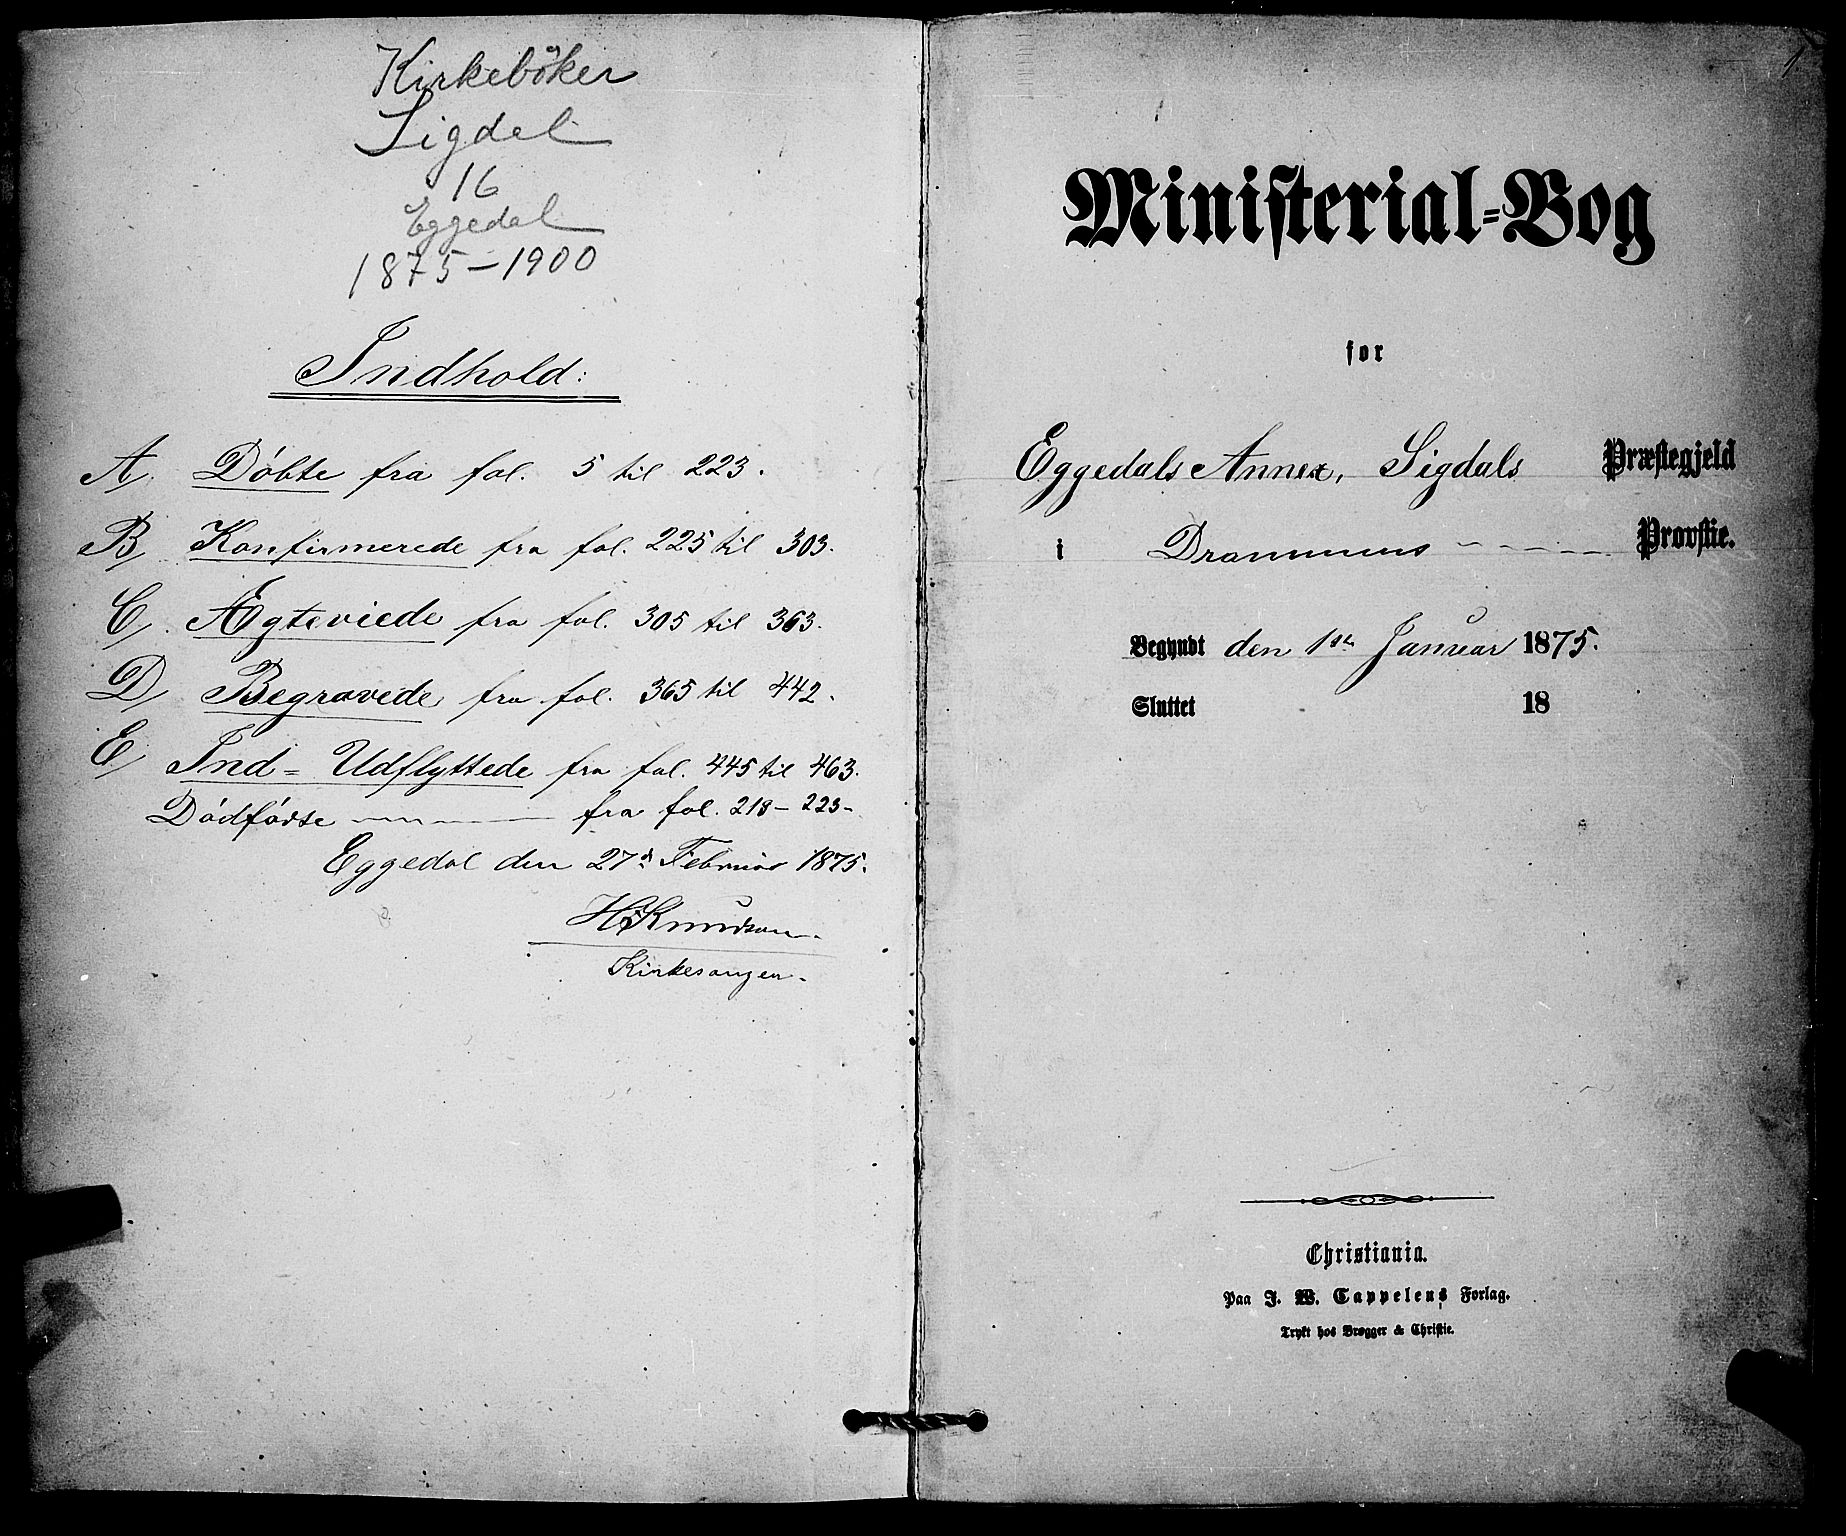 Kirkeböker
Sigdal
16
Eggedal
1875-1900
Indhold:
A. Døbte fra fol. 5 til 223.
B, Konfirmerede fra fol. 225 til 303.
C, Ægteviede fra fol. 305 til 363.
D, Begravede fra fol. 365 til 442.
E, Ind- Udflyttede fra fol. 445 til 463.
Dødfødte fra fol. 218-223-
Eggedal den 27de Februar 1875.
Knudsen
Kirkesanger.
1.
Ministerial-Bog
for
Eggedals Annex, Sigdals Præstegjeld
i Drammens Provstie.
Begyndt den 1ste Januar 1875.
Sluttet 18
Christiania.
Paa J. W. Cappelens Forlag.
Trykt hos Brøgger & Christie.